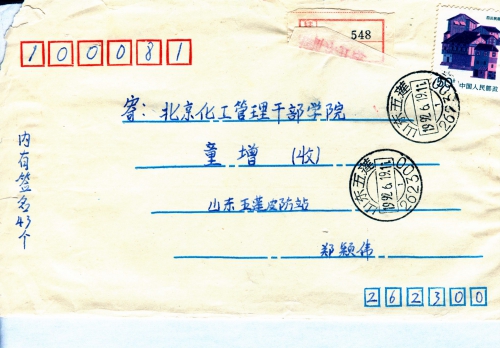 100081
548
50 中国人民邮政
寄:北京化工管理干部学院
童增 (收)
山东五莲皮防站
郑颖伟
262300
内有签名43个
山东五莲
1992.6.19.11
262300
山东五莲
1992.6.19.11
262300